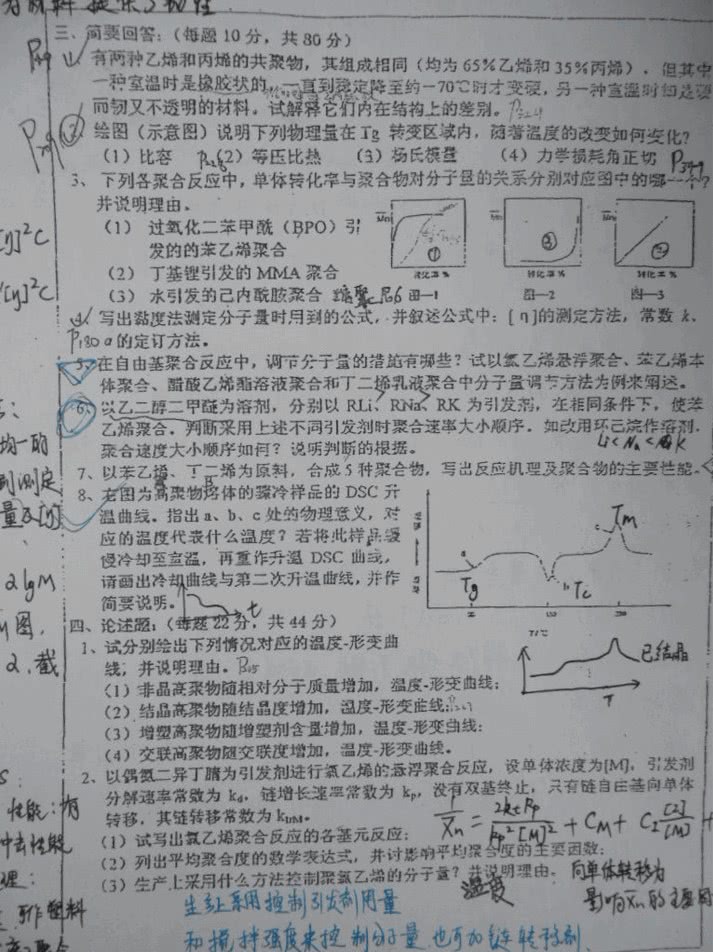 三、简要回答：（每题 10 分，共 80 分）
1、有两种乙烯和丙烯的共聚物，其组成相同（均为 65%乙烯和 35%丙烯），但其中
一种室温时是橡胶状的，一直到稳定降至约-70℃时才变硬，另一种室温时却是硬
而韧又不透明的材料。试解释它们内在结构上的差别。
绘图（示意图）说明下列物理量在 Tg 转变区域内，随着温度的改变如何变化？
（1）比容 （2）等压比热 （3）杨氏模量 （4）力学损耗角正切
3、下列各聚合反应中，单体转化率与聚合物对分子量的关系分别对应图中的哪一个？
并说明理由。
（1） 过氧化二苯甲酰（BPO）引
发的的苯乙烯聚合
（2） 丁基锂引发的 MMA 聚合
（3） 水引发的己内酰胺聚合
转化率 % 转化率 % 转化率 %
图—1 图—2 图—3
4、写出黏度法测定分子量时用到的公式，并叙述公式中：[η]的测定方法，常数 k、
P180 α的定方法。
5、在自由基聚合反应中，调节分子量的措施有哪些？试以氯乙烯悬浮聚合、苯乙烯本
体聚合、醋酸乙烯酯溶液聚合和丁二烯乳液聚合中分子量调节方法为例来阐述。
6、以乙二醇二甲醚为溶剂，分别以 RLi、RNa、RK 为引发剂，在相同条件下，使苯
乙烯聚合。判断采用上述不同引发剂时聚合速率大小顺序。如改用环己烷作溶剂，
聚合速度大小顺序如何？说明判断的根据。
Li < Na < K
7、以苯乙烯、丁二烯为原料，合成 5 种聚合物，写出反应机理及聚合物的主要性能。
8、右图为高聚物熔体的骤冷样品的 DSC 升
温曲线。指出 a、b、c 处的物理意义，对
应的温度代表什么温度？若将此样品缓
慢冷却至室温，再重作升温 DSC 曲线，
请画出冷却曲线与第二次升温曲线，并作
简要说明。
Tg Tc Tm
T/℃
四、论述题：（每题 22 分，共 44 分）
1、试分别绘出下列情况对应的温度-形变曲
线，并说明理由。
（1）非晶高聚物随相对分子质量增加，温度-形变曲线；
（2）结晶高聚物随结晶度增加，温度-形变曲线；
（3）增塑高聚物随增塑剂含量增加，温度-形变曲线；
（4）交联高聚物随交联度增加，温度-形变曲线。
已结晶
T
2、以偶氮二异丁腈为引发剂进行氯乙烯的悬浮聚合反应，设单体浓度为[M]，引发剂
分解速率常数为 kd，链增长速率常数为 kp，没有双基终止，只有链自由基向单体
转移，其链转移常数为 ktrM。
（1）试写出氯乙烯聚合反应的各基元反应；
（2）列出平均聚合度的数学表达式，并讨影响平均聚合度的主要因数；
（3）生产上采用什么方法控制聚氯乙烯的分子量？并说明理由。
向单体转移为
温度
影响Xn的主要因
生产上采用控制引发剂用量
和搅拌强度来控制分子量 也可加链转移剂